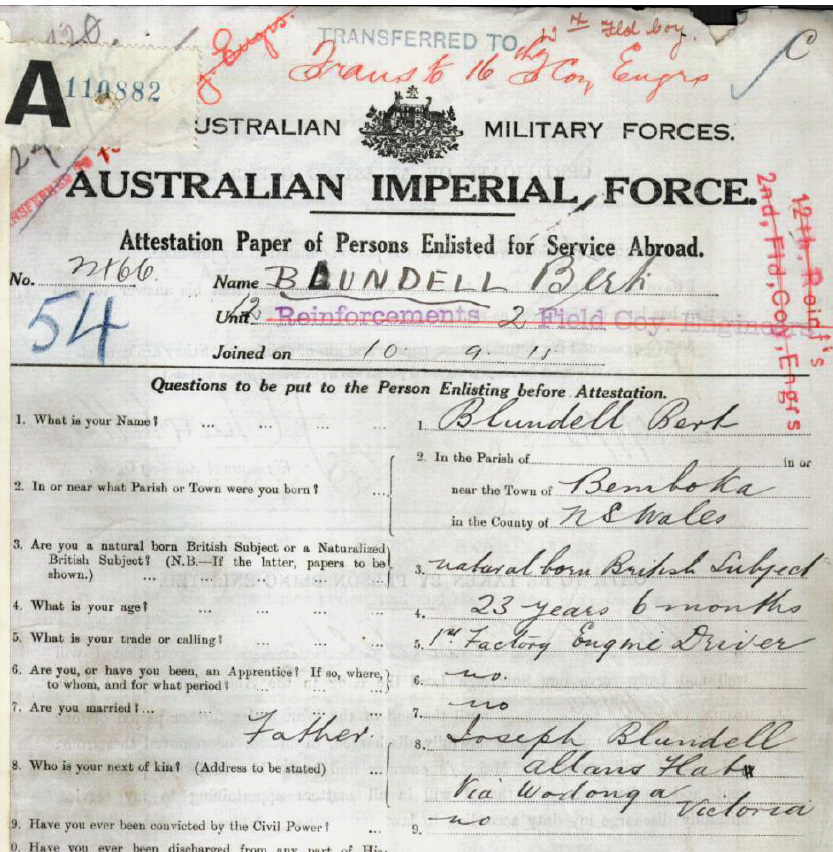 120.
TRANSFERRED TO 12th Fld Coy.
Engrs.
Trans to 16th F Coy Engrs
C
A 110882
AUSTRALIAN MILITARY FORCES.
27
AUSTRALIAN IMPERIAL FORCE.
12th. Reinf's
2nd, Fld, Coy, Engrs
Attestation Paper of Persons Enlisted for Service Abroad.
No. 2466. Name BLUNDELL Bert
54
Unit 12 Reinforcements 2 Field Coy. Engineers
Joined on 10 9 15
Questions to be put to the Person Enlisting before Attestation.
1. What is your Name? ... ... ... ... 1. Blundell Bert
2. In the Parish of in or
2. In or near what Parish or Town were you born? ... near the Town of Bemboka
in the County of N S Wales
3. Are you a natural born British Subject or a Naturalized
British Subject? (N.B.—If the latter, papers to be
shown.) ... 3. natural born British Subject
4. What is your age? ... ... ... ... 4. 23 years 6 months
5. What is your trade or calling? ... ... ... 5. Factory Engine Driver
6. Are you, or have you been, an Apprentice? If so, where,
to whom, and for what period? 6. no.
7. Are you married? ... ... ... ... 7. no
Father. 8. Joseph Blundell
8. Who is your next of kin? (Address to be stated) ... Allans Flat
Via Wodonga
Victoria
9. Have you ever been convicted by the Civil Power? ... 9. no
0. Have you ever been discharged from any part of His